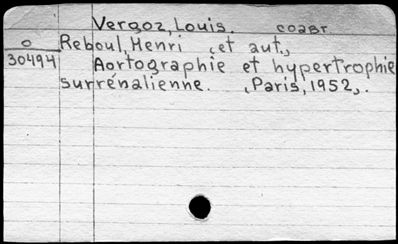 Vergoz, Louis. COABT
o Reboul, Henri , et aut.,
30494 Aortographie et hypertrophie
surrénalienne. , Paris, 1952,.